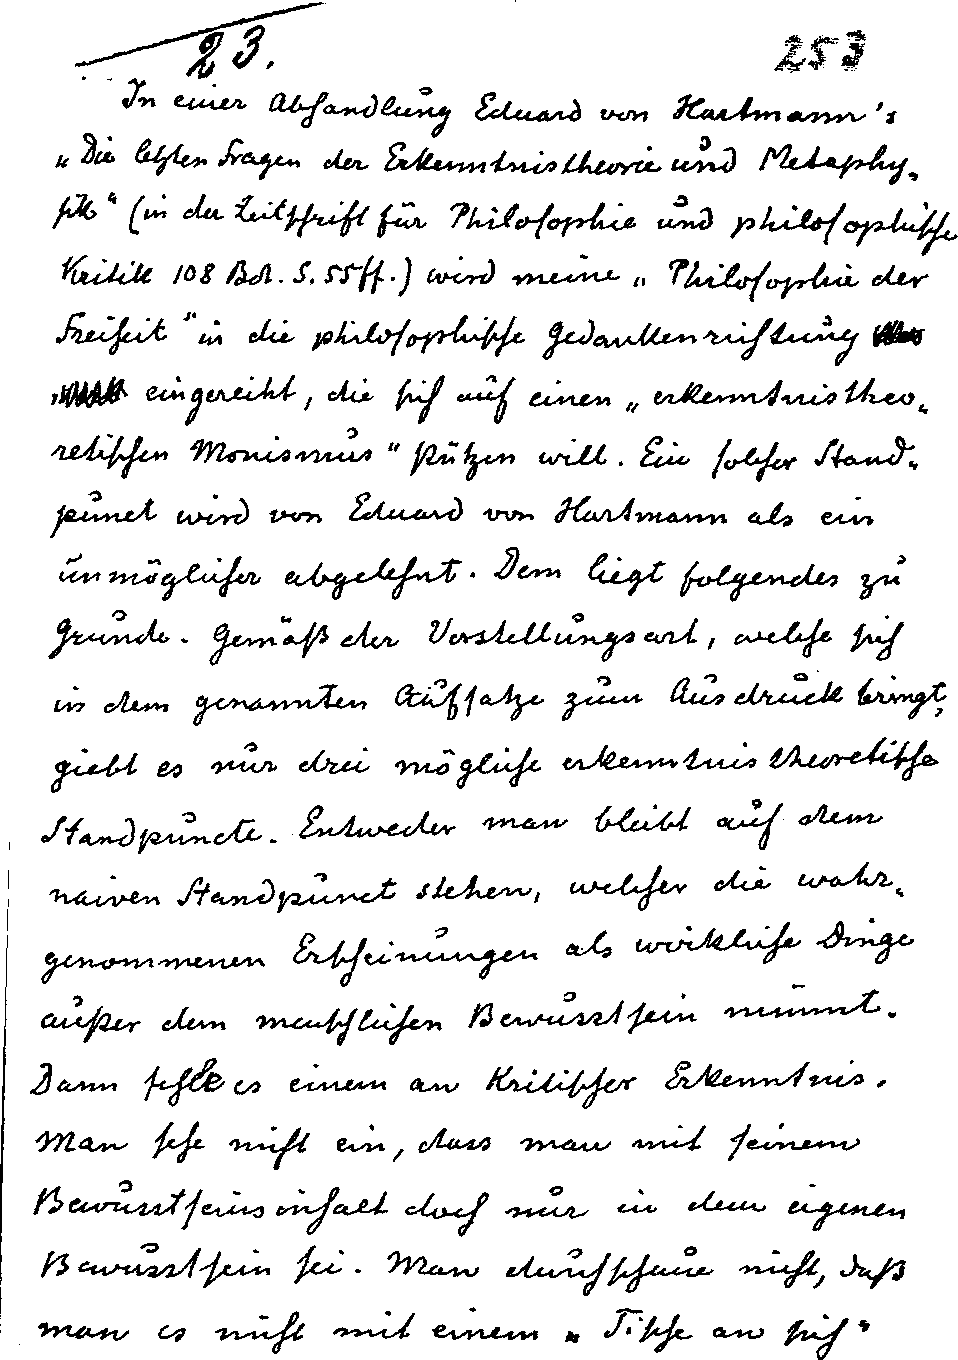 23.
253
In einer Abhandlung Eduard von Hartmann's
„Die letzten Fragen der Erkenntnistheorie und Metaphy-
sik“ (in der Zeitschrift für Philosophie und philosophische
Kritik 108 Bd. S. 55 ff.) wird meine „Philosophie der
Freiheit“ in die philosophische Gedankenrichtung
eingereiht, die sich auf einen „erkenntnistheo-
retischen Monismus“ stützen will. Ein solcher Stand-
punct wird von Eduard von Hartmann als ein
unmöglicher abgelehnt. Dem liegt folgendes zu
Grunde. Gemäß der Vorstellungsart, welche sich
in dem genannten Aufsatze zum Ausdruck bringt,
giebt es nur drei mögliche erkenntnistheoretische
Standpuncte. Entweder man bleibt auf dem
naiven Standpunct stehen, welcher die wahr-
genommenen Erscheinungen als wirkliche Dinge
außer dem menschlichen Bewusstsein nimmt.
Dann fehle es einem an kritischer Erkenntnis.
Man sehe nicht ein, dass man mit seinem
Bewusstseinsinhalt doch nur in dem eigenen
Bewusstsein sei. Man durchschaue nicht, daß
man es nicht mit einem „Tische an sich“